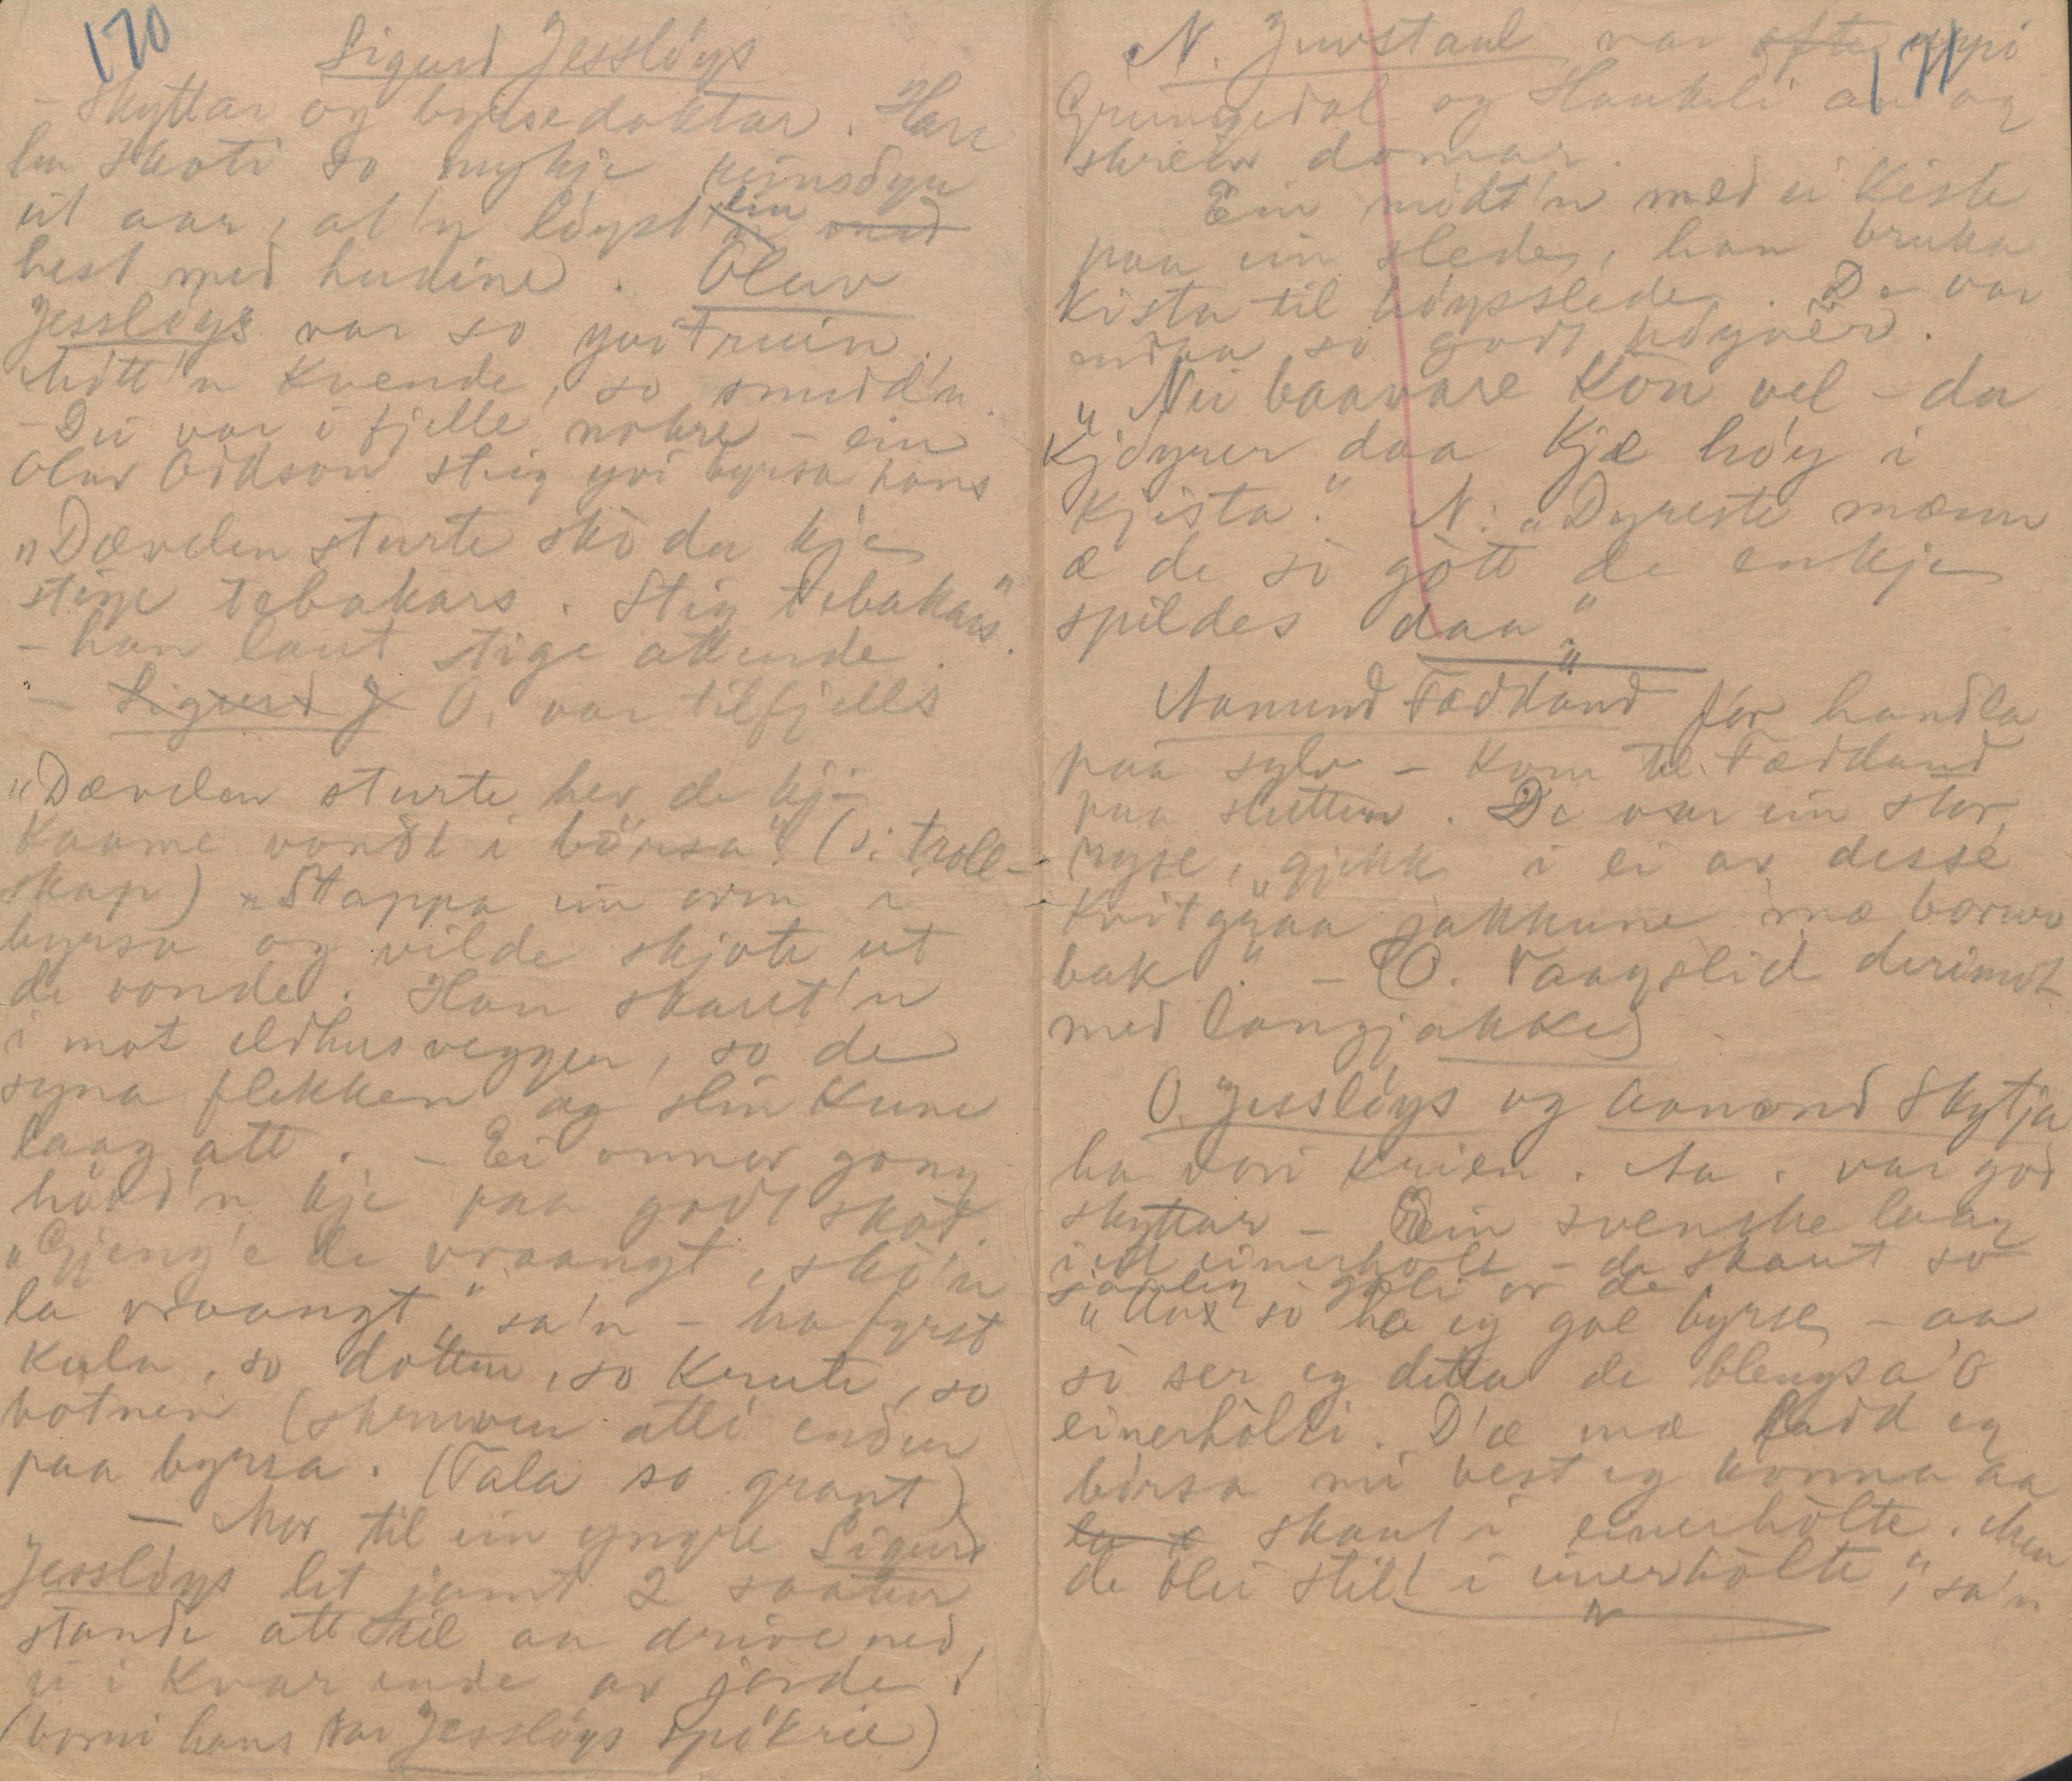 170
Sigurd Jesslöys
- Skyttar og byrsedoktar. Han
la skoti so mykje reinsdyr
eit aar, at'n löyst ein
hest med hudine. Olav
Jesslöys var so yvitruin.
Mött'n Kvende, so snudd'n.
- Dei var i fjelle nokre - ein
Olav Oddson steig yvi byrsa hans
"Dævelen sturte sko du kje
stige tebakars. Stig tebakars"
- han laut stige attende.
- Sigurd J O. var tilfjells
"Dævelen sturte hev de kje
kaame vondt i börsa"! (o: troll-
skap) - Stappa ein orm i
byrsa og vilde skjote ut
de vonde. Han skaut'n
i mot eldhusveggen, so de
syna flekken og slin kune
laag att. - Ei onnor gong
höld'n kje paa godt skot.
"Gjeng'e de vraangt, sko'n
la vraangt", sa'n - ha fyrst
kula, so dotten, so krute, so
botnen (skruven atti enden
paa byrsa. (Tala so grant)
- Mor til ein yngre Sigurd
Jesslöys let jamt 2 saatur
stande att til aa drive ned,
ei i kvar ende av jorde!
(borni hans var Jesslöys spökrie)
171
N. Juvstaul var ofte uppi
Grungedal og Haukeli aa og
skreiv domar.
Ein mödt'n med ei Kiste
paa ein slede, han bruka
Kista til höyssledе. De var
endaa so godt höyver.
"Nei baavare Kon vel - du
Kjöyrer daa kje höy i
Kjista." N: "Dyreste mænn
æ de so gött de enkje
spildes daa".
Aamund Fæddand för handla
paa sylv - kom til Fæddand
paa slutten. De var ein stor
ryse, "gjekk i ei av desse
kvitgraa jakkune mæ borur
bak". - (O. Vaagslid derimot
med langjakke)
O. Jesslöys og Aamond Skytja
ha vori krien. Aa. var god
skyttar - Ein svenske laag
i eit einerholt - de skaut so
"Aax so ha eg goe byrse - aa
so ser eg detta de blengsa 'o
einerhölti. D'æ mæ ladd eg
börsa mi best eg konna aa
skaut i einerhölte. Men
de blei still i einerhölte", sa'n